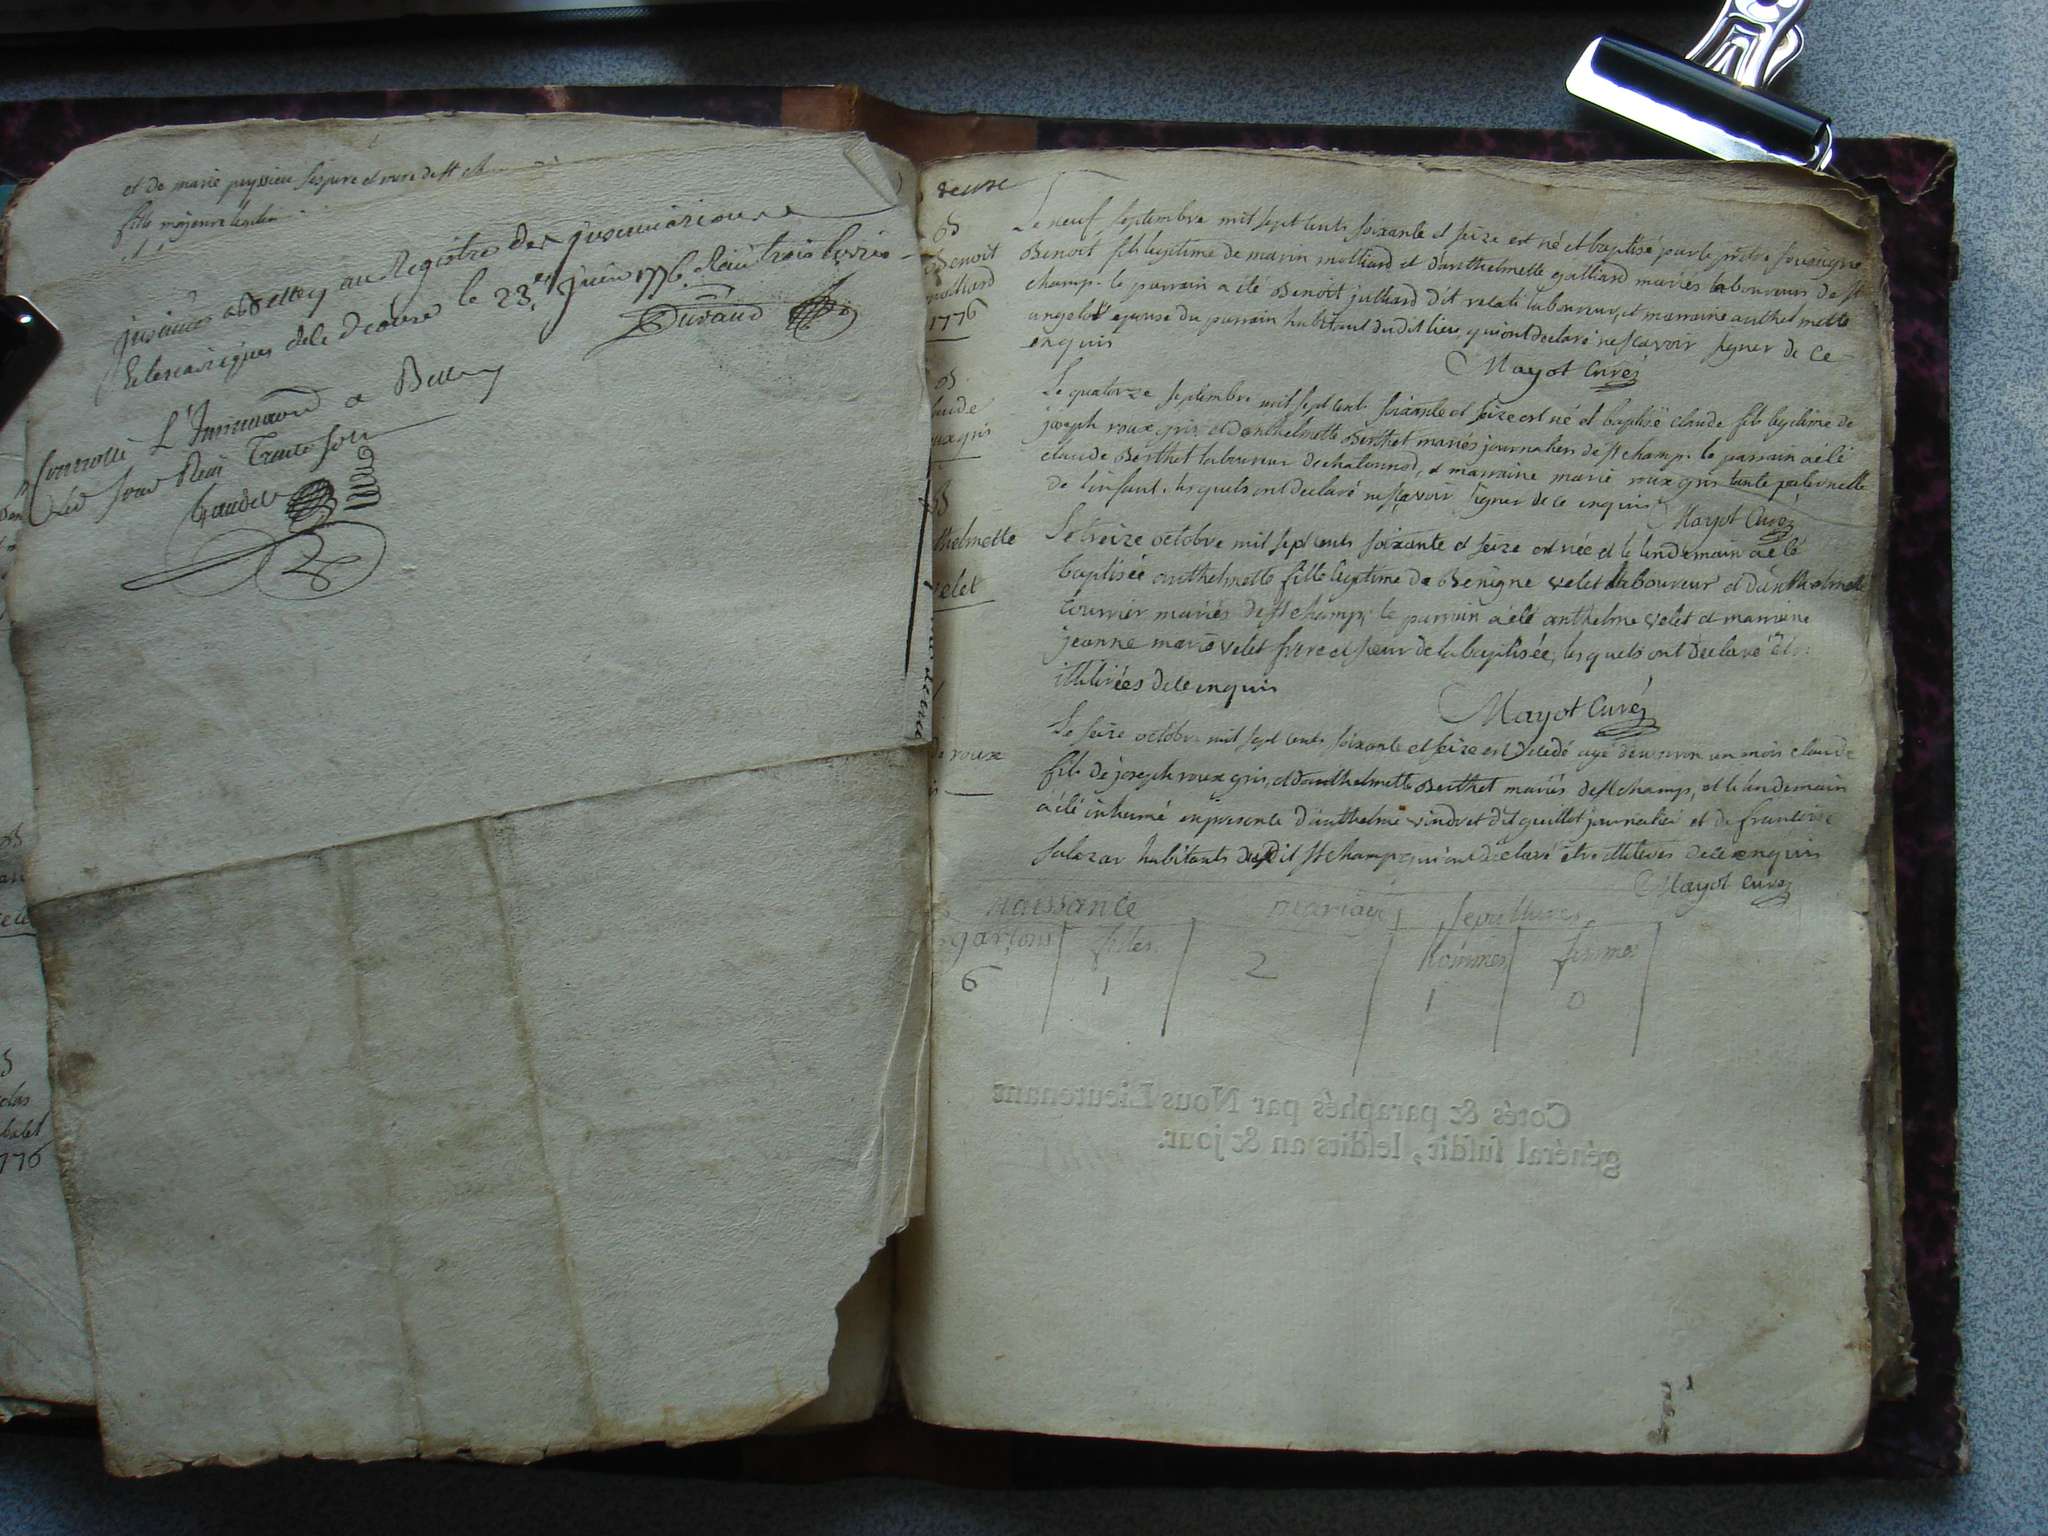 et de marie peyssieu ses pere et mere de st
fille mojeure
insinués a Belley au Registre des insinuations
Ecclesiastiques dele Diocèse le 23e juin 1776 Reçu trois livres
Durand
Controllé L'Insinuaon a Belley
Led jour Reçu Trente sols
Gaudet
deuze
B
Benoit
molliard
1776
Le neuf septembre mil sept cents soixante et seize est né et baptisé par le prêtre soussigné
Benoit fils legitime de marin molliard et d'anthelmette galliard mariés laboureurs de st
champ. le parrain a été Benoit julliard dit velat laboureur, et marraine anthelmette
angelot epouse du parrain habitant dudit lieu, qui ont declaré ne scavoir signer de ce
enquis
Mayot Curé
B
claude
roux gris
Le quatorze septembre mil sept cents soixante et seize est né et baptisé claude fils legitime de
joseph roux gris, et d'anthelmette Berthet mariés journaliers de st champ. le parrain a été
claude Berthet laboureur de chatonnod, et marraine marie roux gris tante paternelle
de l'enfant, lesquels ont declaré ne scavoir signer de ce enquis
Mayot Curé
B
anthelmette
velet
Le treize octobre mil sept cents soixante et seize est née et le lendemain a été
baptisée anthelmette fille legitime de Benigne velet laboureur et d'anthelmette
Tournier mariés de st champ, le parrain a été anthelme velet et marraine
jeanne marie velet frere et soeur de la baptisée, lesquels ont declaré être
illiterées de ce enquis
Mayot Curé
roux
Le seize octobre mil sept cents soixante et seize est decedé agé d'environ un mois claude
fils de joseph roux gris, et d'anthelmette Berthet mariés de st champ, et le lendemain
a été inhumé en presence d'anthelme vindret dit guillot journalier et de francoise
salazar habitants dudit st champ qui ont declaré être illiterés de ce enquis
Mayot Curé
naissance mariage sepultures
garçons filles hommes femmes
6 1 2 1 0
Cotés & paraphés par Nous Lieutenant
général susdit, lesdits an & jour.